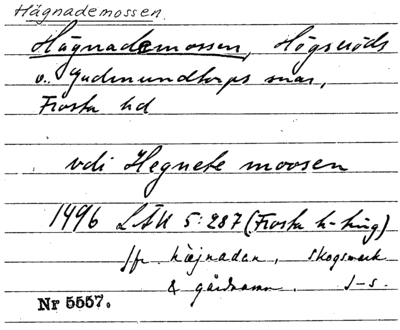 Hägnademossen.
Hägnademossen, Högseröds
o. Gudmundtorps snar,
Frosta hd
vdi Hegnete moosen
1496 LÄU 5:287 (Frosta h-ting)
jfr häjnadan, skogsmark
& gårdnamn. J-s.
Nr 5557.